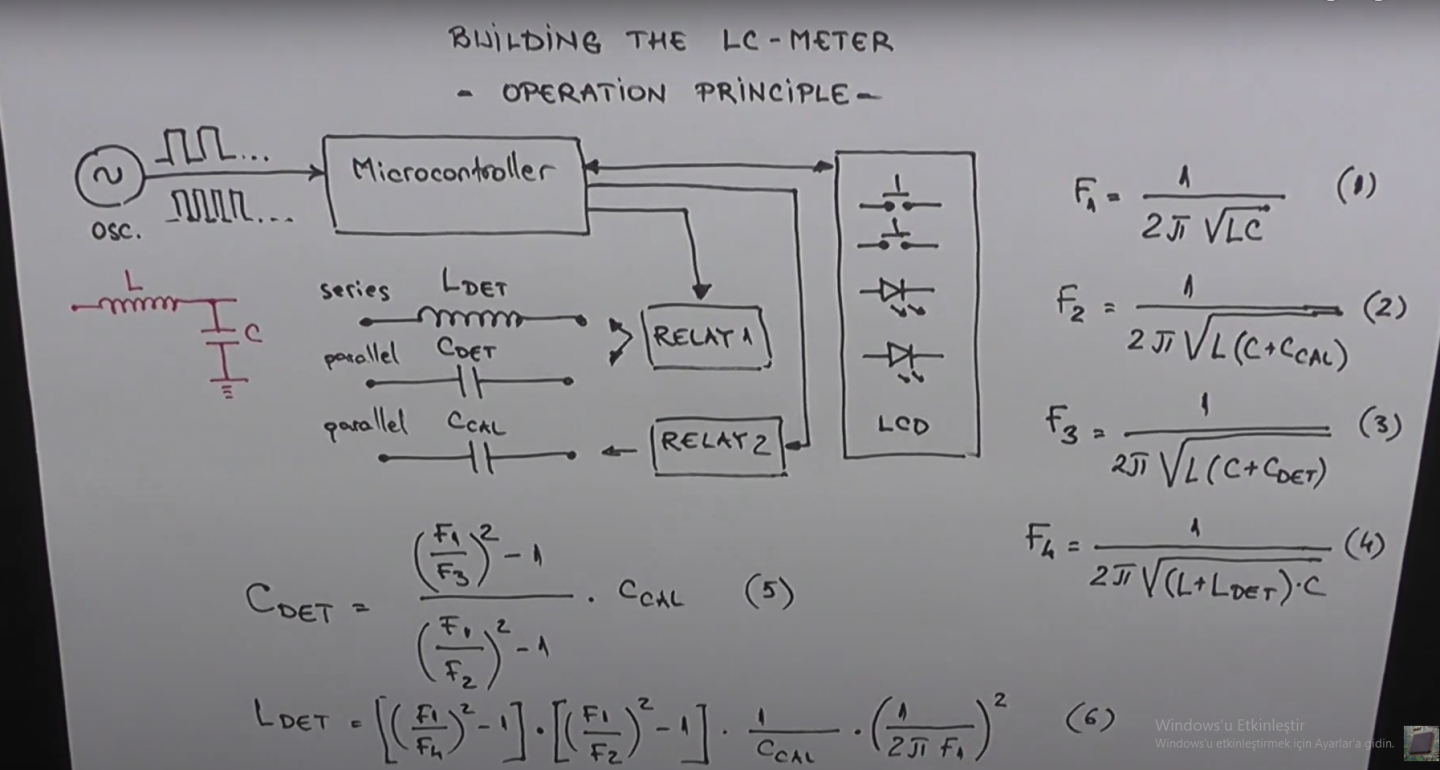 BUILDING THE LC-METER
- OPERATION PRINCIPLE -
OSC.
Microcontroller
L
C
series LDET
parallel CDET
parallel CCAL
RELAY 1
RELAY 2
LCD
F1 = 1 / 2π √LC (1)
F2 = 1 / 2π √L(C+CCAL) (2)
F3 = 1 / 2π √L(C+CDET) (3)
F4 = 1 / 2π √(L+LDET)·C (4)
CDET = (F1/F3)² - 1 / (F1/F2)² - 1 · CCAL (5)
LDET = [(F1/F4)² - 1] · [(F1/F2)² - 1] · 1/CCAL · (1 / 2π F1)² (6)
Windows'u Etkinleştir
Windows'u etkinleştirmek için Ayarlar'a gidin.